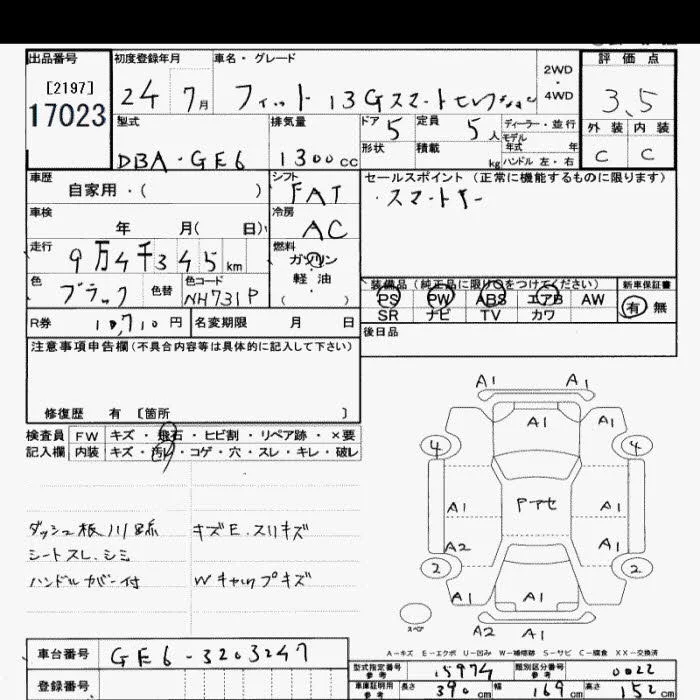 出品番号 初度登録年月 車名・グレード 評価点
[2197] 2WD
17023 24 7月 フィット 13Gスマートセレクション 4WD 3.5
型式 排気量 ドア 5 定員 5人 ディーラー・並行 外装 内装
モデル
年式 年
DBA・GE6 1300cc 形状 積載 kg ハンドル 左・右 C C
車歴 シフト セールスポイント (正常に機能するものに限ります)
自家用・( ) FAT ・スマートキー
車検 冷房
年 月( 日) AC
走行 燃料
9万4千345km ガソリン
色 色替 色コード 軽油 装備品(純正品に限り○をつけてください) 新車保証書
ブラック NH731P ( ) PS PW ABS エアB AW 有・無
SR ナビ TV カワ
R券 10,710円 名変期限 月 日 後日品
注意事項申告欄(不具合内容等は具体的に記入して下さい)
修復歴 有 [箇所 ]
A1 A1
A1 A1
検査員 FW キズ・飛石・ヒビ割・リペア跡・×要
記入欄 内装 キズ・汚れ・コゲ・穴・スレ・キレ・破レ
4 4
A1 A1
ダッシュ板川跡 キズE.スリキズ
シートスレ.シミ A2 A1
ハンドルカバー付 Wキャップキズ
2 2
A1 A1 A1
スペア
A2 A1
A-キズ E-エクボ U-凹み W-補修跡 S-サビ C-腐食 XX-交換済
車台番号 GE6-3203247
型式指定番号 参考 15974 類別区分番号 参考 0022
登録番号 車庫証明用 参考 長さ 390cm 幅 169cm 高さ 152cm